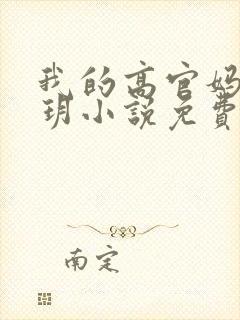 我的高官妈
玥小说免费
南定